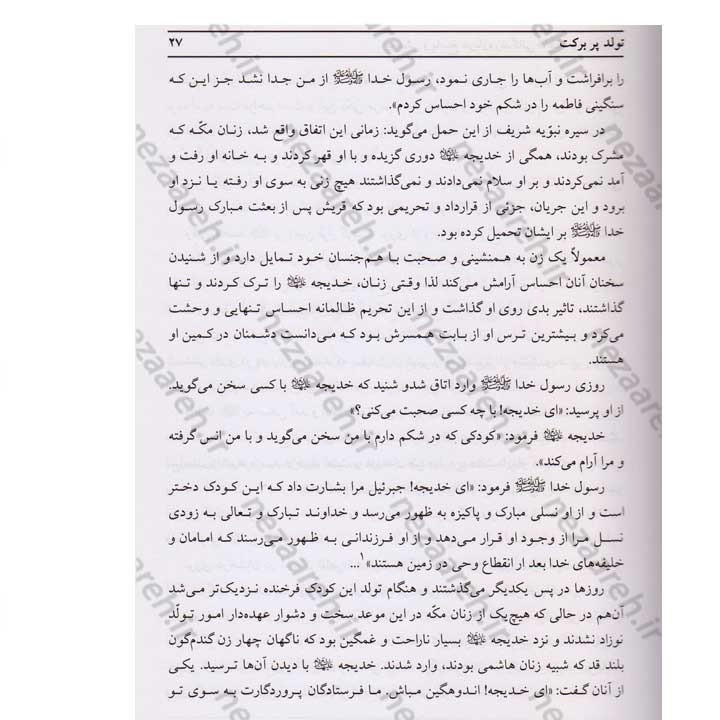 تولد پر برکت ۲۷
را برافراشت و آب‌ها را جاری نمود، رسول خدا ﷺ از من جدا نشد جز این که
سنگینی فاطمه را در شکم خود احساس کردم».
در سیره نبوّیه شریف از این حمل می‌گوید: زمانی این اتفاق واقع شد، زنان مکّه که
مشرک بودند، همگی از خدیجه دوری گزیده و با او قهر کردند و به خانه او رفت و
آمد نمی‌کردند و بر او سلام نمی‌دادند و نمی‌گذاشتند هیچ زنی به سوی او رفته یا نزد او
برود و این جریان، جزئی از قرارداد و تحریمی بود که قریش پس از بعثت مبارک رسول
خدا ﷺ بر ایشان تحمیل کرده بود.
معمولاً یک زن به همنشینی و صحبت با هم‌جنسان خود تمایل دارد و از شنیدن
سخنان آنان احساس آرامش می‌کند لذا وقتی زنان، خدیجه را ترک کردند و تنها
گذاشتند، تاثیر بدی روی او گذاشت و از این تحریم ظالمانه احساس تنهایی و وحشت
می‌کرد و بیشترین ترس او از بابت همسرش بود که می‌دانست دشمنان در کمین او
هستند.
روزی رسول خدا ﷺ وارد اتاق شدو شنید که خدیجه با کسی سخن می‌گوید.
از او پرسید: «ای خدیجه! با چه کسی صحبت می‌کنی؟»
خدیجه فرمود: «کودکی که در شکم دارم با من سخن می‌گوید و با من انس گرفته
و مرا آرام می‌کند».
رسول خدا ﷺ فرمود: «ای خدیجه! جبرئیل مرا بشارت داد که این کودک دختر
است و از او نسلی مبارک و پاکیزه به ظهور می‌رسد و خداوند تبارک و تعالی به زودی
نسل مرا از وجود او قرار می‌دهد و از او فرزندانی به ظهور می‌رسند که امامان و
خلیفه‌های خدا بعد ار انقطاع وحی در زمین هستند»۱...
روزها در پس یکدیگر می‌گذشتند و هنگام تولد این کودک فرخنده نزدیک‌تر می‌شد
آن‌هم در حالی که هیچ‌یک از زنان مکّه در این موعد سخت و دشوار عهده‌دار امور تولّد
نوزاد نشدند و نزد خدیجه بسیار ناراحت و غمگین بود که ناگهان چهار زن گندم‌گون
بلند قد که شبیه زنان هاشمی بودند، وارد شدند. خدیجه با دیدن آن‌ها ترسید. یکی
از آنان گفت: «ای خدیجه! اندوهگین مباش. ما فرستادگان پروردگارت به سوی تو
nezaareh.ir